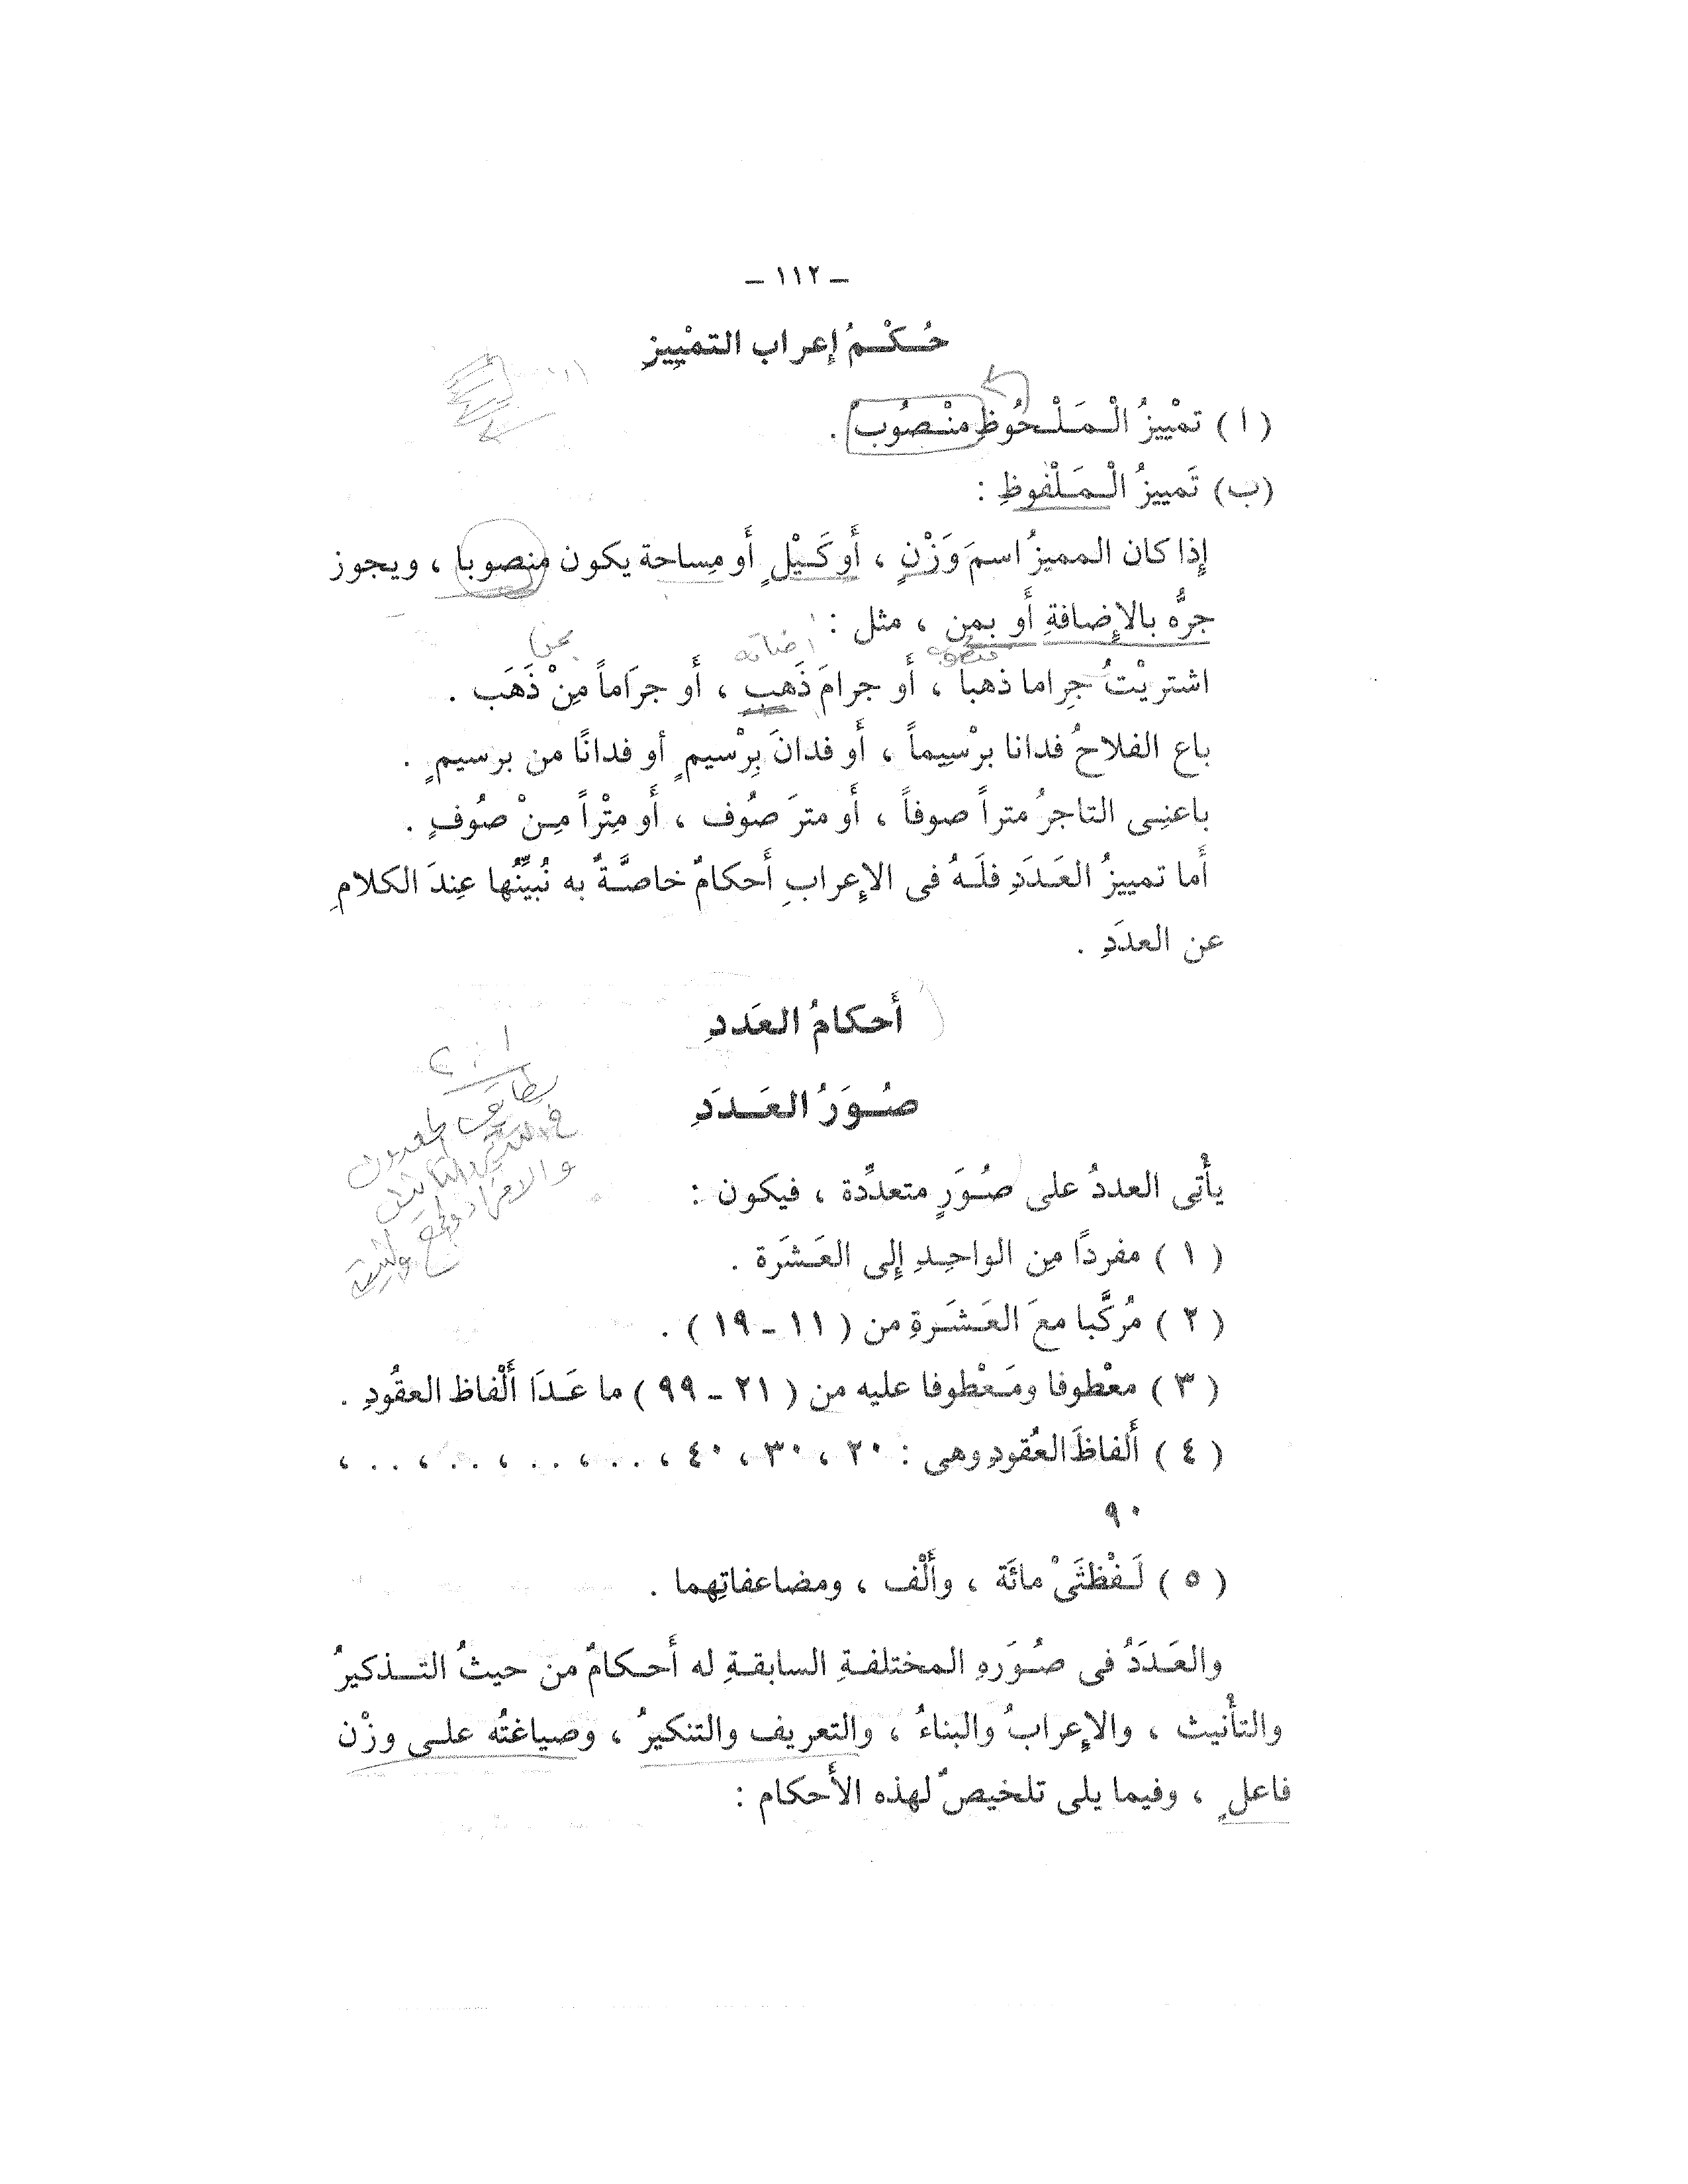 ـ ١١٢ ـ
حُكْمُ إعراب التمْيِيزِ
( ا ) تمْيِيزُ الْمَلْحُوظِ منْصُوبٌ .
(ب) تَمييزُ الْمَلْفُوظِ :
إِذا كان المميزُ اسمَ وَزْنٍ ، أَو كَيْلٍ أَو مِساحة يكون منصوبا ، ويجوز
جرُّه بالإِضافةِ أَو بمِن ، مثل :
منصوب اضافه بمن
اشتريْتُ جِراما ذهبا ، أَو جرامَ ذَهبٍ ، أَو جرَاماً مِنْ ذَهَب .
باع الفلاحُ فدانا برْسِيماً ، أَو فدانَ بِرْسيمٍ أو فدانًا من برسيمٍ .
باعنِى التاجرُ متراً صوفاً ، أَو مترَ صُوف ، أَو مِتْراً مِنْ صُوفٍ .
أَما تمييزُ العَدَدِ فلَهُ فى الإِعرابِ أَحكامٌ خاصَّةٌ به نُبيِّنُها عِندَ الكلامِ
عن العدَدِ .
أَحكامُ العَددِ
صُوَرُ العَدَدِ
١ : ٢
يأْتِى العددُ على صُوَرٍ متعدِّدة ، فيكون :
( ١ ) مفردًا مِن الواحِدِ إِلى العَشَرة .
( ٢ ) مُركَّبا معَ العَشَرةِ من ( ١١ ـ ١٩ ) .
( ٣ ) معْطوفا ومَعْطوفا عليه من ( ٢١ ـ ٩٩ ) ما عَدَا أَلْفاظ العقُودِ .
( ٤ ) أَلفاظَ العُقودِ وهى : ٢٠ ، ٣٠ ، ٤٠ ، . . ، . . ، . . ، . . ،
٩٠
( ٥ ) لَفْظَتَىْ مائَة ، وأَلْف ، ومضاعفاتِهما .
والعَدَدُ فى صُوَرهِ المختلفةِ السابقةِ له أَحكامٌ من حيثُ التذكيرُ
والتأْنيث ، والإِعرابُ والبناءُ ، والتعريف والتنكيرُ ، وصياغتُه على وزْن
فاعلٍ ، وفيما يلى تلخيصٌ لهذه الأَحكام :